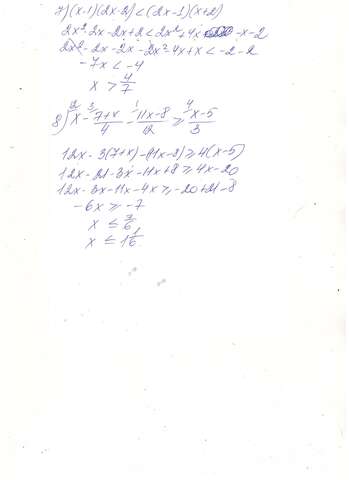 7) (x-1)(2x-2) < (2x-1)(x+2)
2x²-2x-2x+2 < 2x²+4x -x-2
2x²-2x-2x-2x²-4x+x < -2-2
-7x < -4
x > 4/7
8) x - 7+x/4 - 11x-8/12 ≥ x-5/3
12x - 3(7+x) - (11x-8) ≥ 4(x-5)
12x - 21 - 3x - 11x + 8 ≥ 4x - 20
12x - 3x - 11x - 4x ≥ -20 + 21 - 8
-6x ≥ -7
x ≤ 7/6
x ≤ 1 1/6